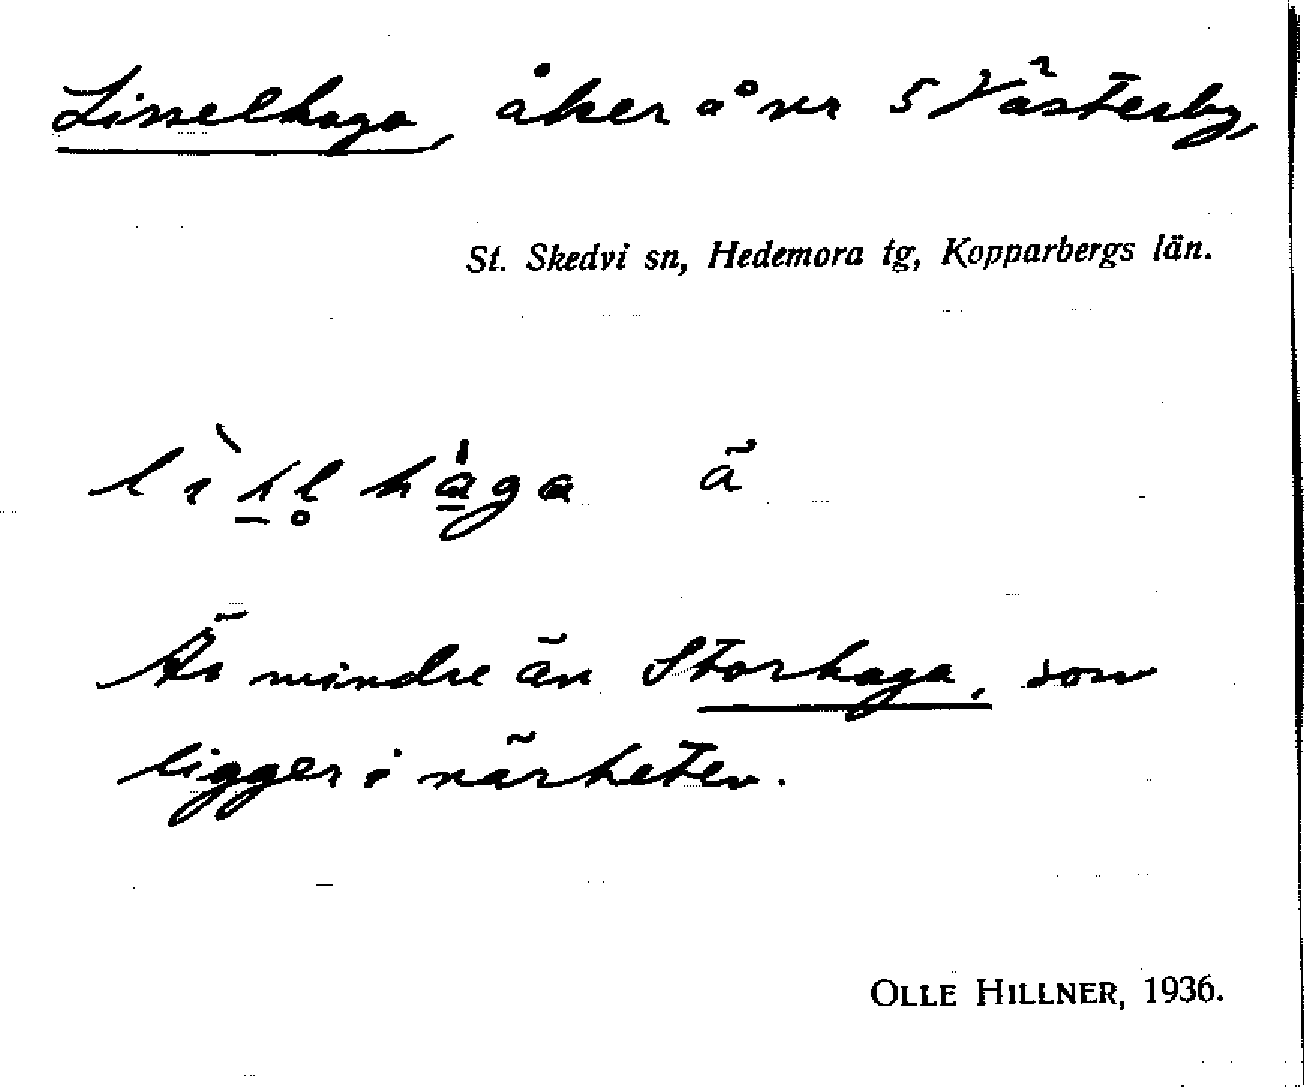 Lisselhaga, åker å nr 5 Västerby,
St. Skedvi sn, Hedemora tg, Kopparbergs län.
hàga ã
Är mindre än Storhaga, som
ligger i närheten.
OLLE HILLNER, 1936.